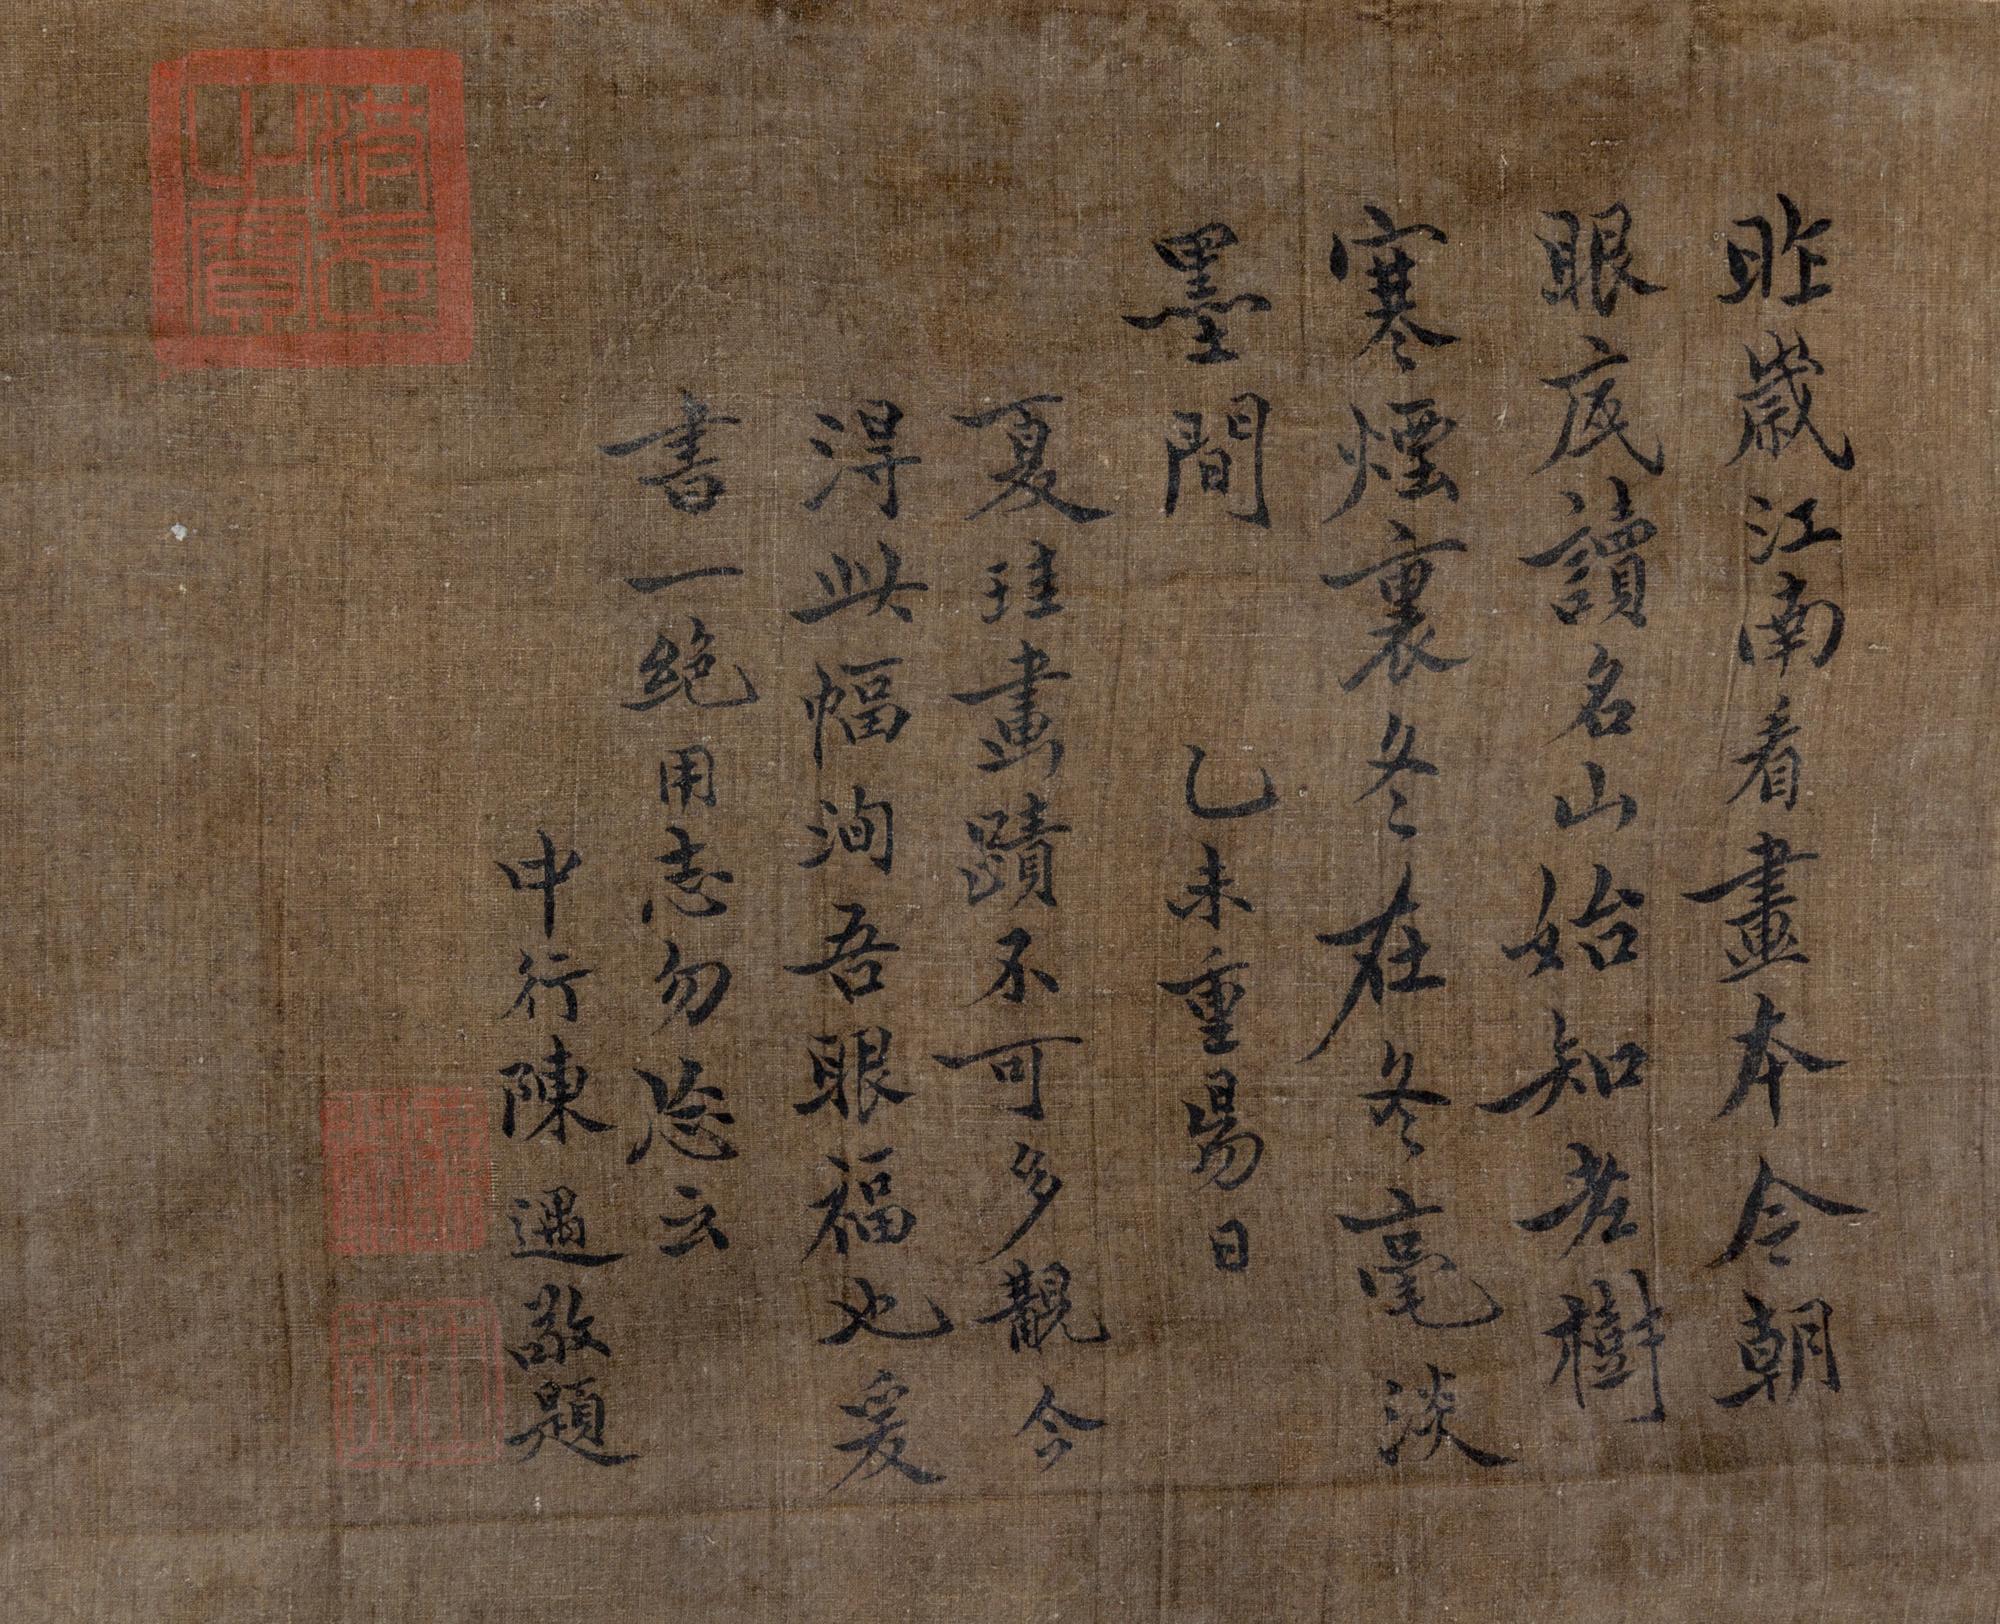 昨歲江南看畫本今朝
眼底讀名山始知老樹
寒煙裏冬在冬毫淡
墨間　乙未重昜日
夏珪畫蹟不可多觀今
得此幅洵吾眼福也爰
書一絕用志勿忘云
中行陳遇敬題